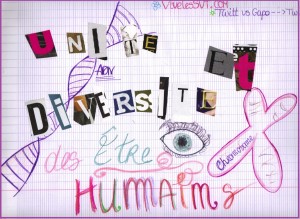 VivelesSVT.com
UNITE
ADN
Et
DIVERSITE
des Être
HUMAINS
Chromosome